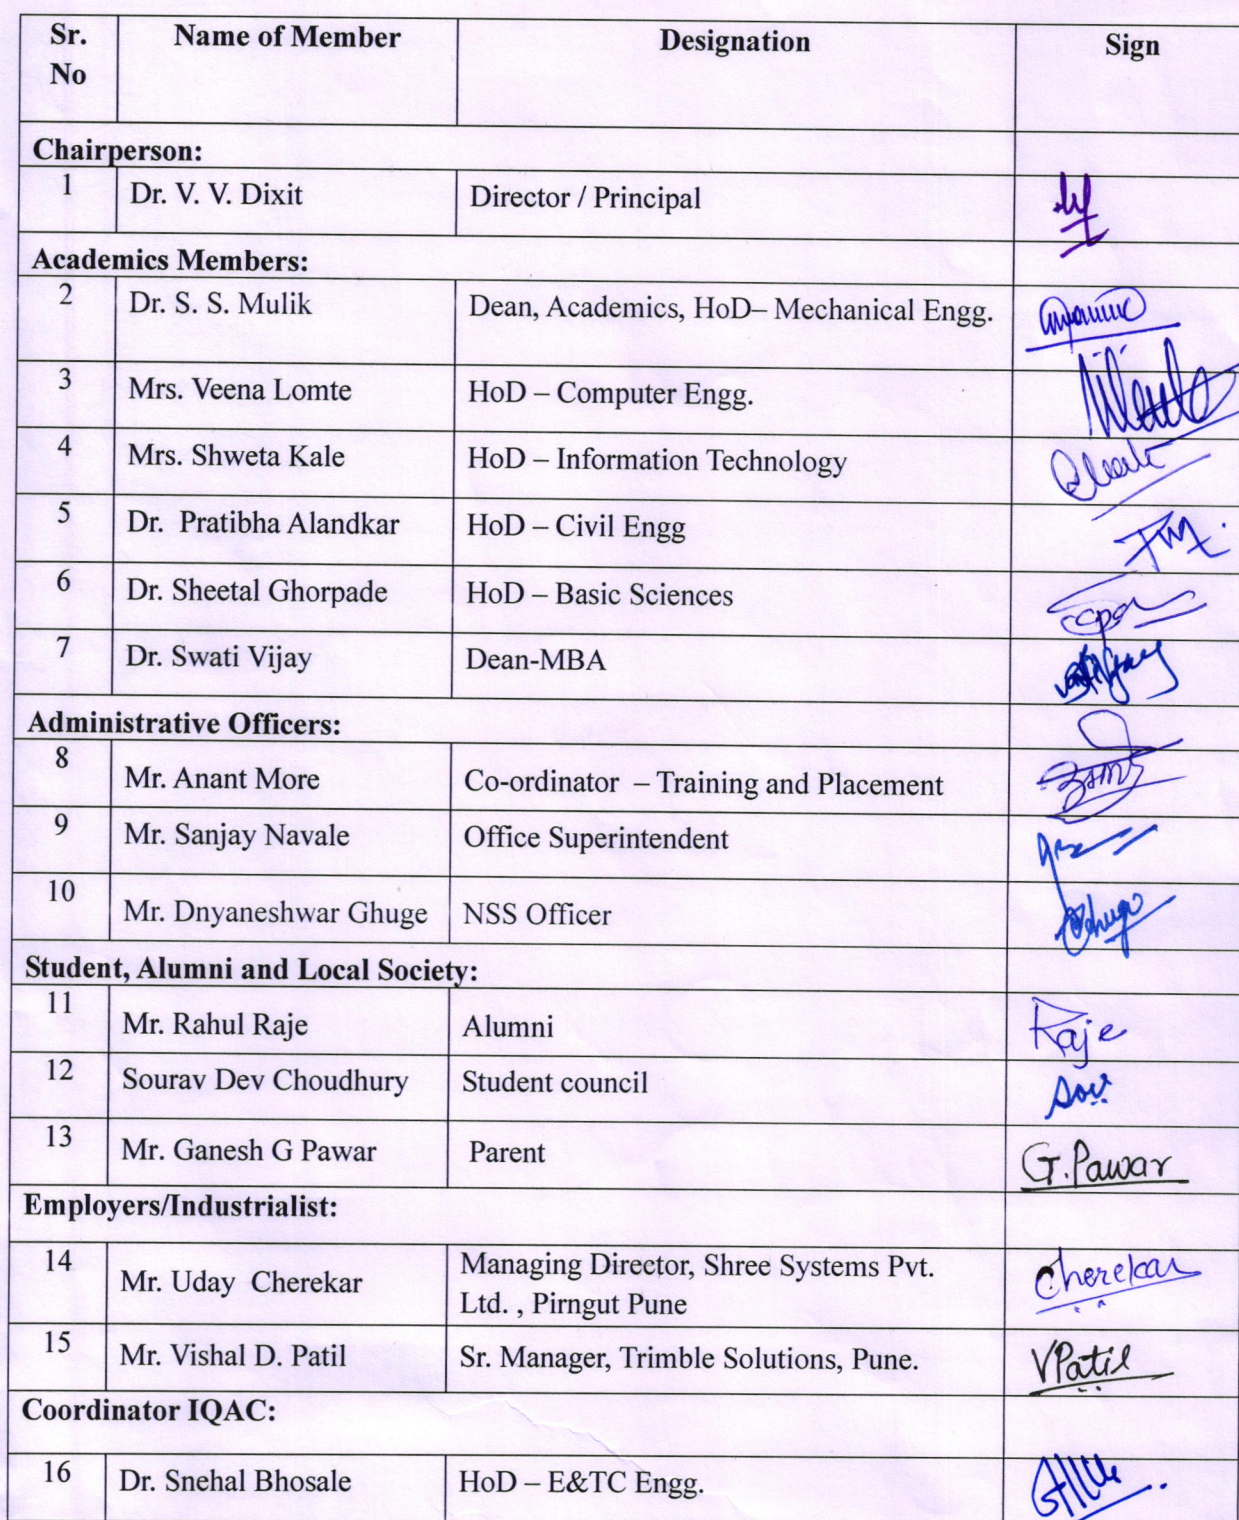 Sr. No Name of Member Designation Sign
Chairperson:
1 Dr. V. V. Dixit Director / Principal
Academics Members:
2 Dr. S. S. Mulik Dean, Academics, HoD– Mechanical Engg.
3 Mrs. Veena Lomte HoD – Computer Engg.
4 Mrs. Shweta Kale HoD – Information Technology
5 Dr. Pratibha Alandkar HoD – Civil Engg
6 Dr. Sheetal Ghorpade HoD – Basic Sciences
7 Dr. Swati Vijay Dean-MBA
Administrative Officers:
8 Mr. Anant More Co-ordinator – Training and Placement
9 Mr. Sanjay Navale Office Superintendent
10 Mr. Dnyaneshwar Ghuge NSS Officer
Student, Alumni and Local Society:
11 Mr. Rahul Raje Alumni Raje
12 Sourav Dev Choudhury Student council
13 Mr. Ganesh G Pawar Parent G.Pawar
Employers/Industrialist:
14 Mr. Uday Cherekar Managing Director, Shree Systems Pvt. Cherekar
Ltd. , Pirngut Pune
15 Mr. Vishal D. Patil Sr. Manager, Trimble Solutions, Pune. VPatil
Coordinator IQAC:
16 Dr. Snehal Bhosale HoD – E&TC Engg.